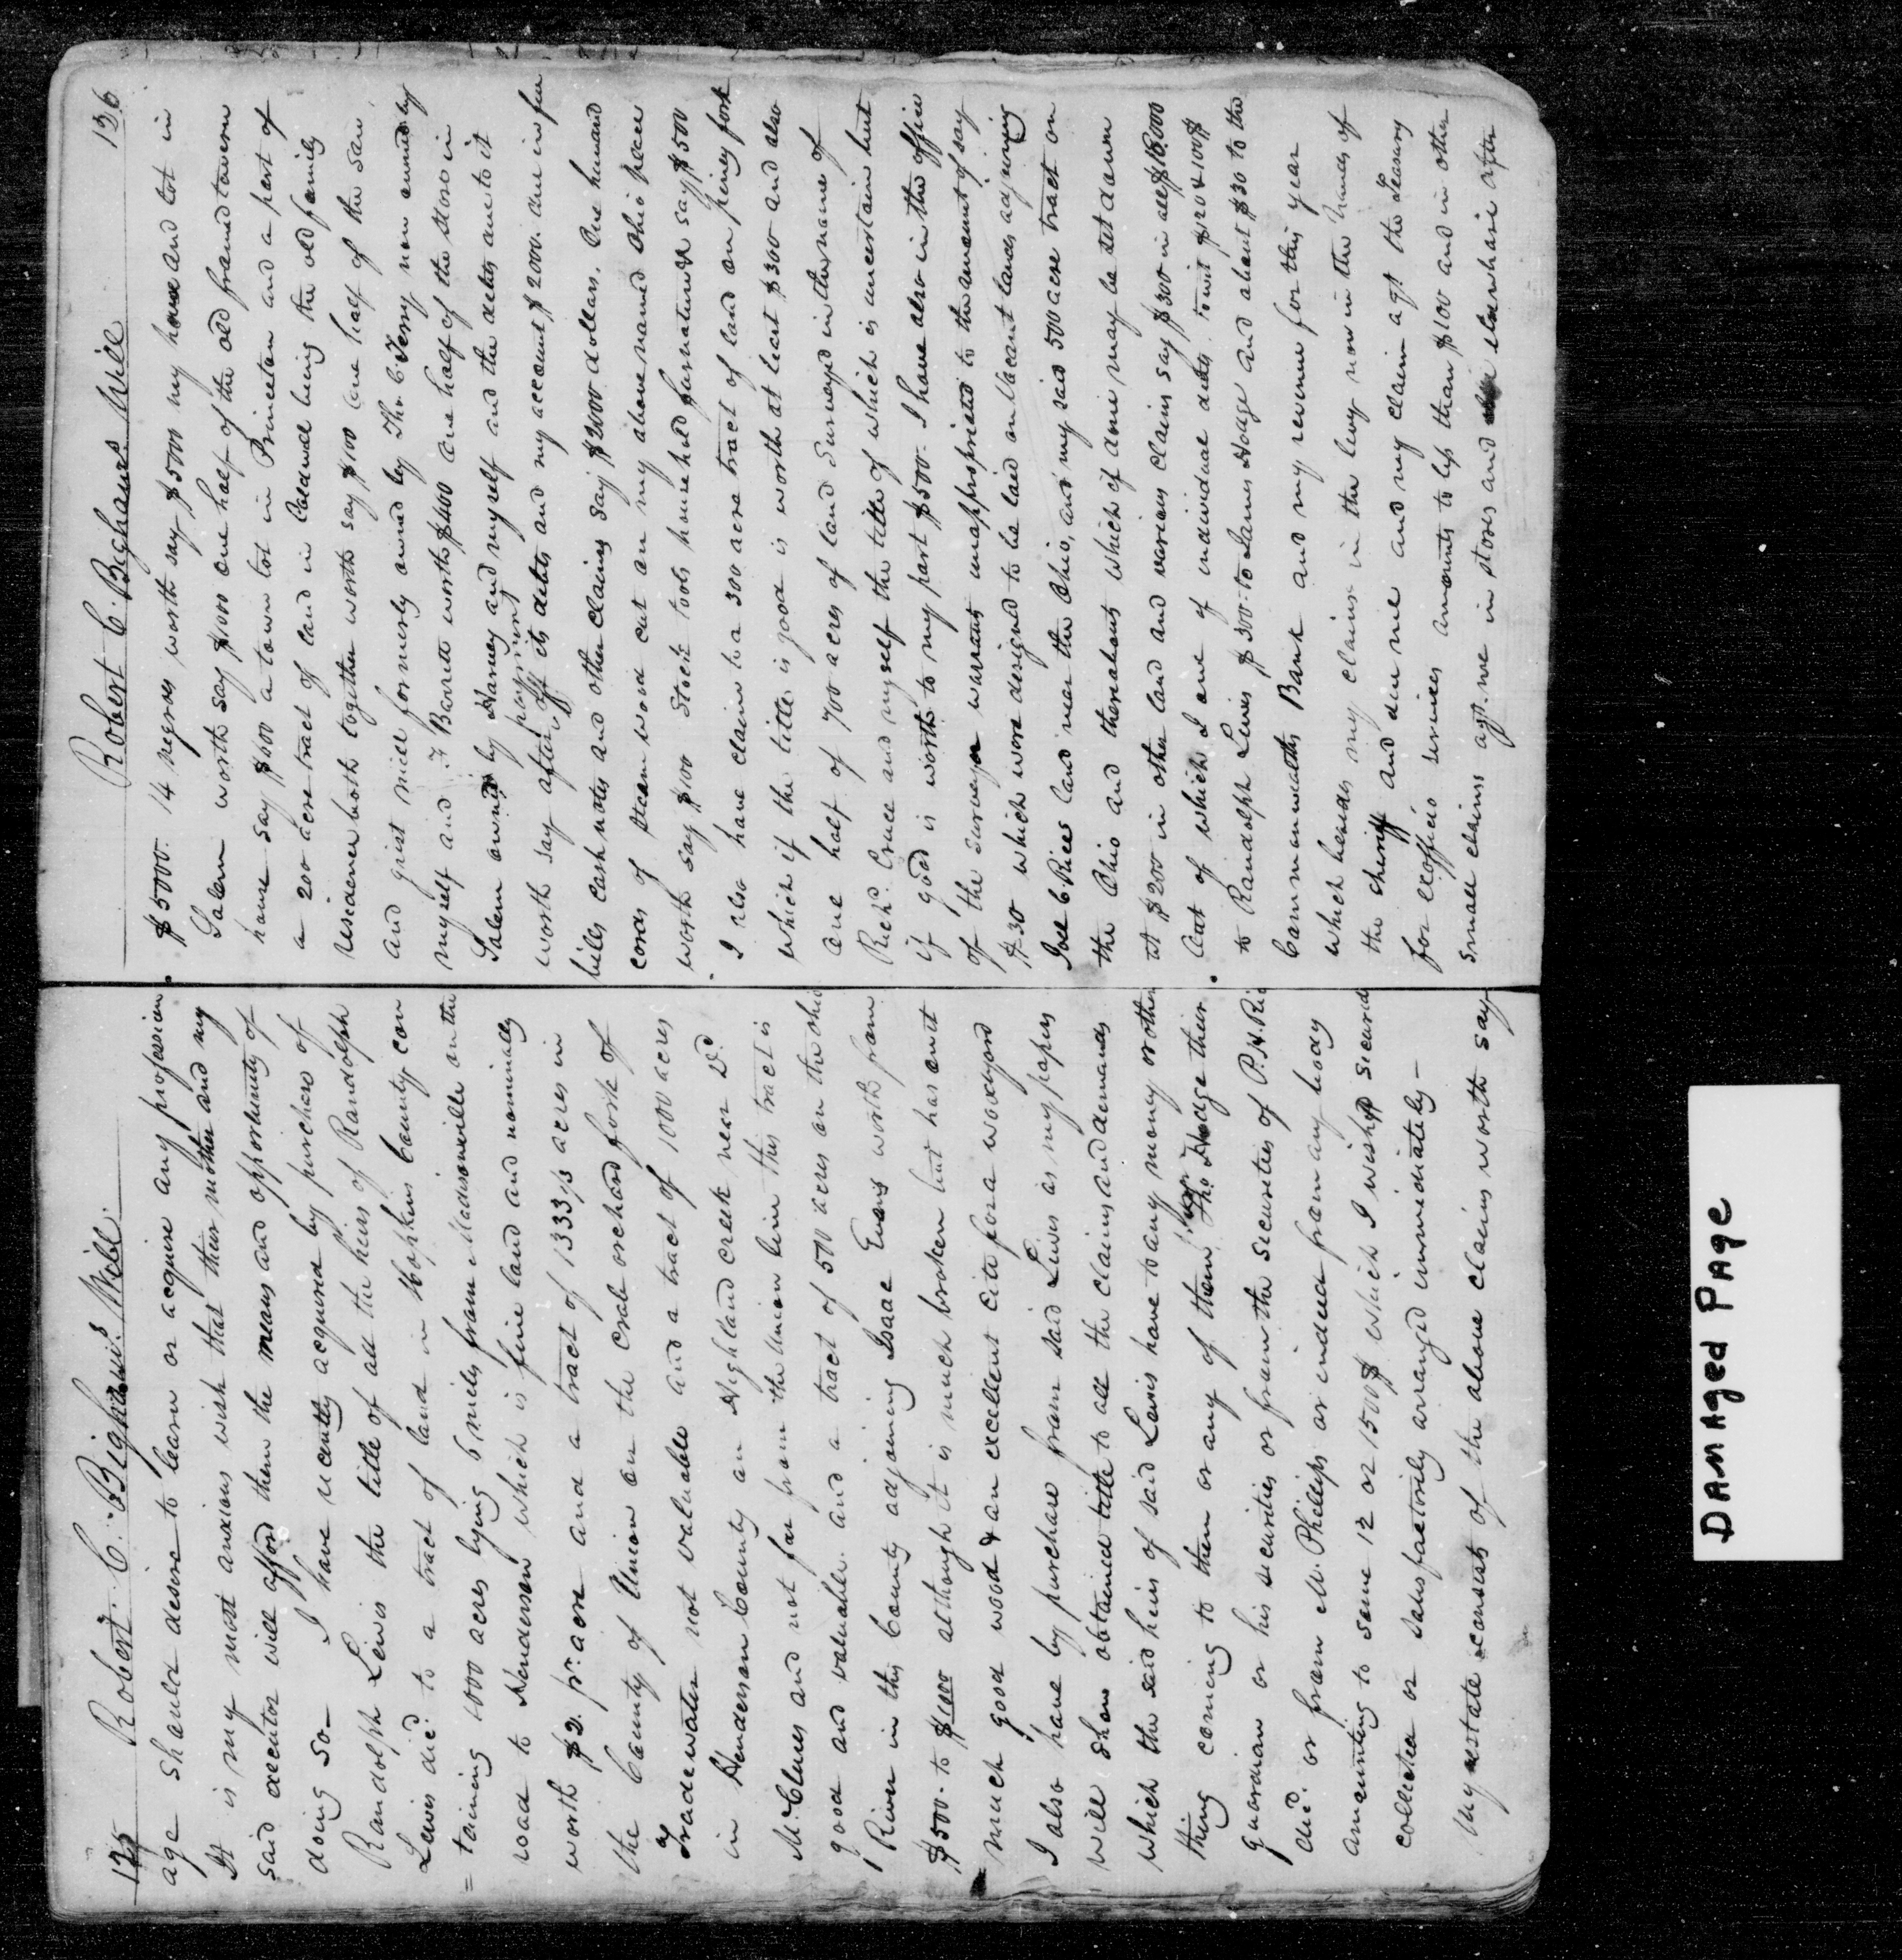 125 Robert. C. Bighams. Will.
age should desire to learn or acquire any profession
It is my most anxious wish that their mother and my
said executor will afford them the means and opportunity of
doing so— I have recently acquired by purchase of
Randolph Lewis the title of all the heirs of Randolph
Lewis dec.d to a tract of land in Hopkins County con
=taining 1000 acres lying 6 miles from Madisonville on the
road to Henderson which is fine land and nominally
worth $2. pr. acre and a tract of 1333 1/3 acres in
the County of Union on the Crab orchard fork of
Tradewater not valuable and a tract of 1000 acres
in Henderson County on Highland creek near Wd.
McClures and not far from the Union line this tract is
good and valuable. and a tract of 500 acres on the ohio
River in this County adjoining Isaac Evans worth from
$500. to $1000 although it is much broken but has on it
much good wood & an excellent cite for a woodyard
I also have by purchase from said Lewis as my papers
will show obtained title to all the claims and demands
which the said heirs of said Lewis have to any money or other
thing coming to them or any of them from Tho. Hodge their
guardian or his securities or from the securities of P.H. Ric
decd. or from M. Phillips or indeed from any body
amounting to some 12 or 1500$ which I wish secured
collected or satisfactorily arranged immediately—
My estate consists of the above claims worth say
Robert C. Bighams Will 126
$5000. 14 negroes worth say $5000 my house and lot in
Salem worth say $1000 one half of the old framed tavern
house say $600 a town lot in Princeton and a part of
a 200 acre tract of land in Caldwell being the old family
residence both together worth say $100 one half of the saw
and grist mill formerly owned by Tho. C. Terry now owned by
myself and J. Barrett worth $400 one half of the store in
Salem owned by Harvey and myself and the debts due to it
worth say after payment off its debts and my account $2000. due in fee
bills cash notes and other claims say $2000 dollars. One hundred
cords of steam wood cut on my above named Ohio place
worth say $100 Stock tools household furnature & say $500
I also have claim to a 300 acre tract of land on piney fork
which if the title is good is worth at least $300 and also
one half of 700 acres of land surveyed in the name of
Richd. Cruce and myself the title of which is uncertain but
if good is worth to my part $500. I have also in the office
of the surveyor warrants unappropriated to the amount of say
$30 which were designed to be laid on vacant lands adjoining
Joel C. Rices land near the Ohio, and my said 500 acre tract on
the Ohio and thereabouts which if done may be set down
at $200 in other land and various claims say $300 in all $18,000
Out of which I owe of individual debts to wit $120 & 100$
to Randolph Lewis $300. to James Hodge and about $30 to the
Commonwealths Bank and my revenue for this year
which besides my claims in the levy now in the hands of
the sheriff and due me and my claim agt the Treasury
for exofficio services amounts to less than $100 and in other
small claims agt. me in stores and elsewhere after
DAMAged PAge